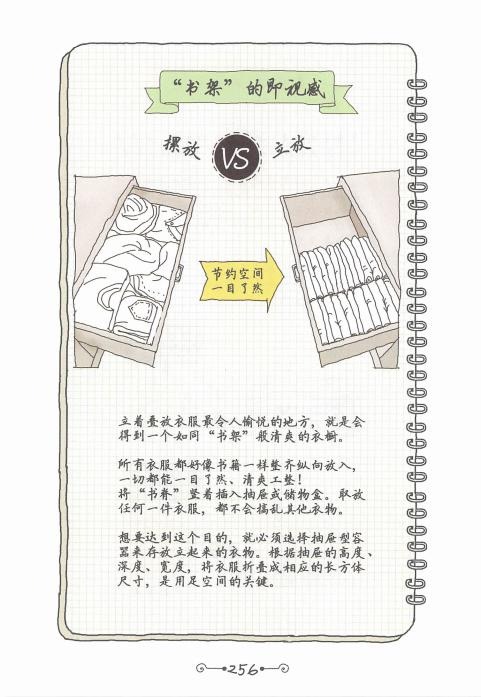 “书架”的即视感
摞放
VS
立放
节约空间
一目了然
立着叠放衣服最令人愉悦的地方，就是会
得到一个如同“书架”般清爽的衣橱。
所有衣服都好像书籍一样整齐纵向放入，
一切都能一目了然、清爽工整！
将“书脊”竖着插入抽屉或储物盒。取放
任何一件衣服，都不会搞乱其他衣物。
想要达到这个目的，就必须选择抽屉型容
器来存放立起来的衣物。根据抽屉的高度、
深度、宽度，将衣服折叠成相应的长方体
尺寸，是用足空间的关键。
256